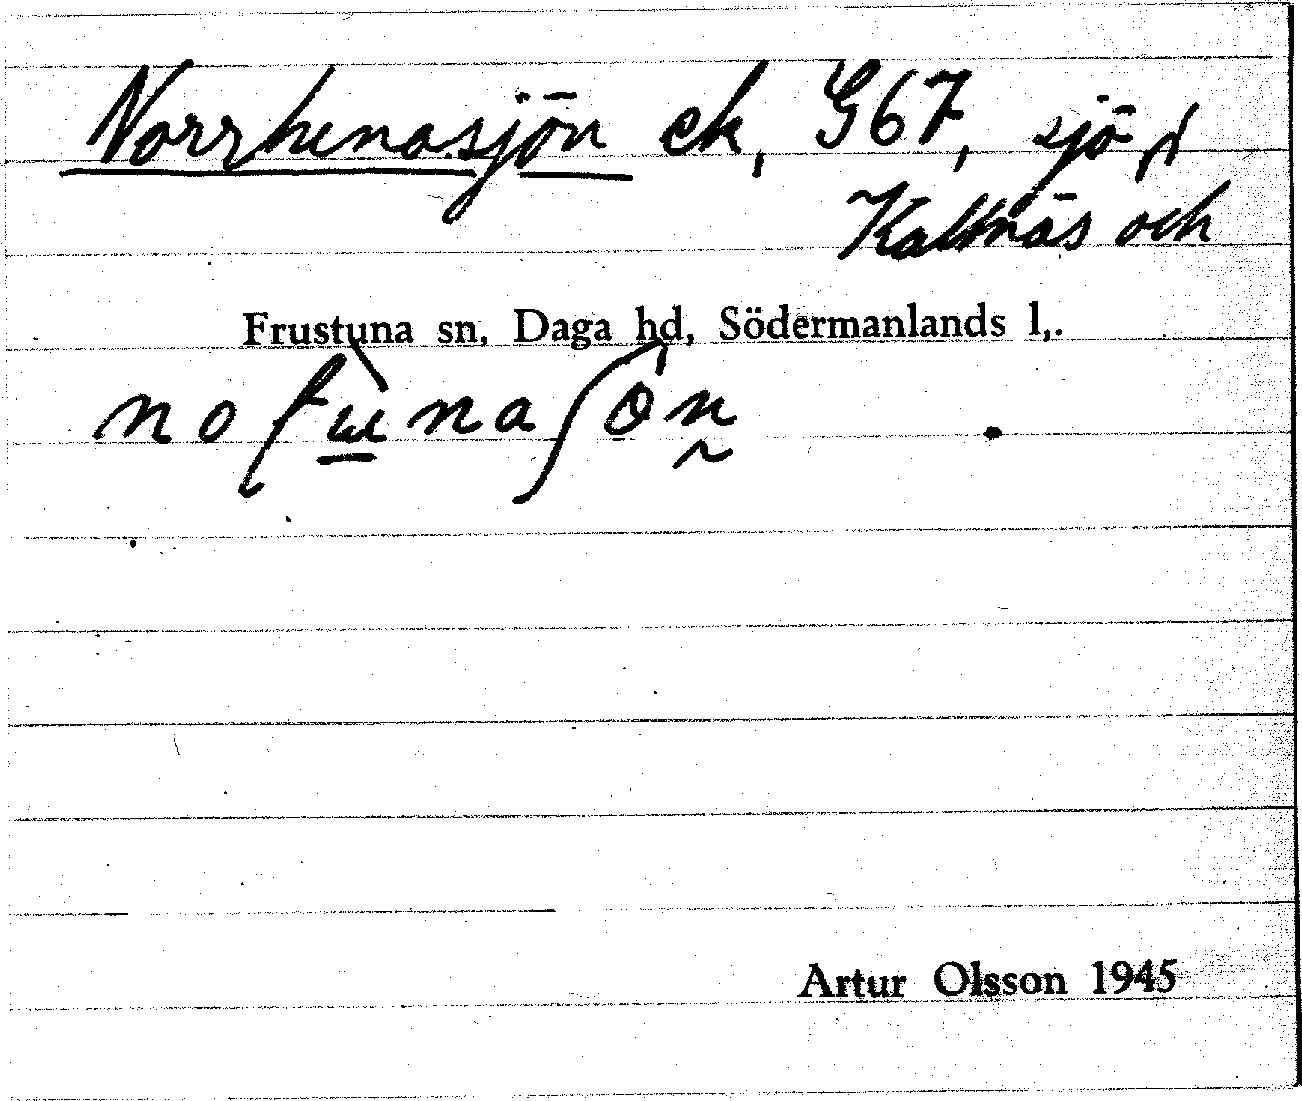 Norrhenasjön ek, G67, sjö,
Kattnäs och
Frustuna sn, Daga hd, Södermanlands l,.
Artur Olsson 1945